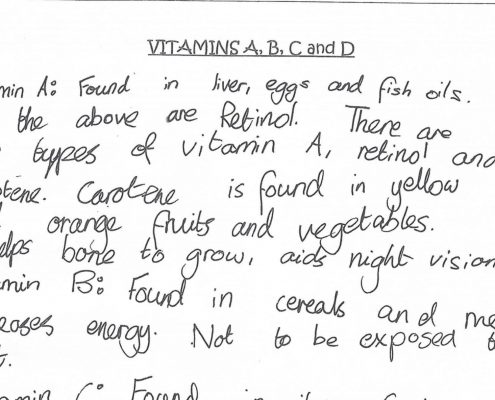 VITAMINS A, B, C and D
min A: Found in liver, eggs and fish oils.
the above are Retinol. There are
types of vitamin A, retinol and
otene. Carotene is found in yellow
orange fruits and vegetables.
elps bone to grow, aids night vision
min B: Found in cereals and me
eases energy. Not to be exposed t
t.
amin C: Found in